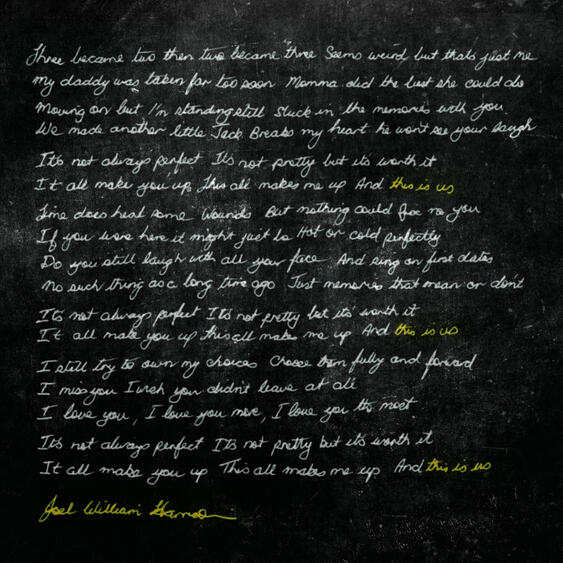 Three became two then two became three Seems weird but thats just me
my daddy was taken far too soon Momma did the best she could do
Moving on but I'm standing still Stuck in the memories with you
We made another little Jack Breaks my heart he won't see your laugh
It's not always perfect It's not pretty but its worth it
It all make you up This all makes me up And this is us
Time does heal some wounds But nothing could fix no you
If you were here it might just be Hot or cold perfectly
Do you still laugh with all your face And sing on first dates
No such thing as a long time ago Just memories that mean or don't
It's not always perfect It's not pretty but its worth it
It all make you up this all makes me up And this is us
I still try to own my choices Choose them fully and forward
I miss you I wish you didn't leave at all
I love you, I love you more, I love you the most
It's not always perfect It's not pretty but its worth it
It all make you up This all makes me up And this is us
Joel William